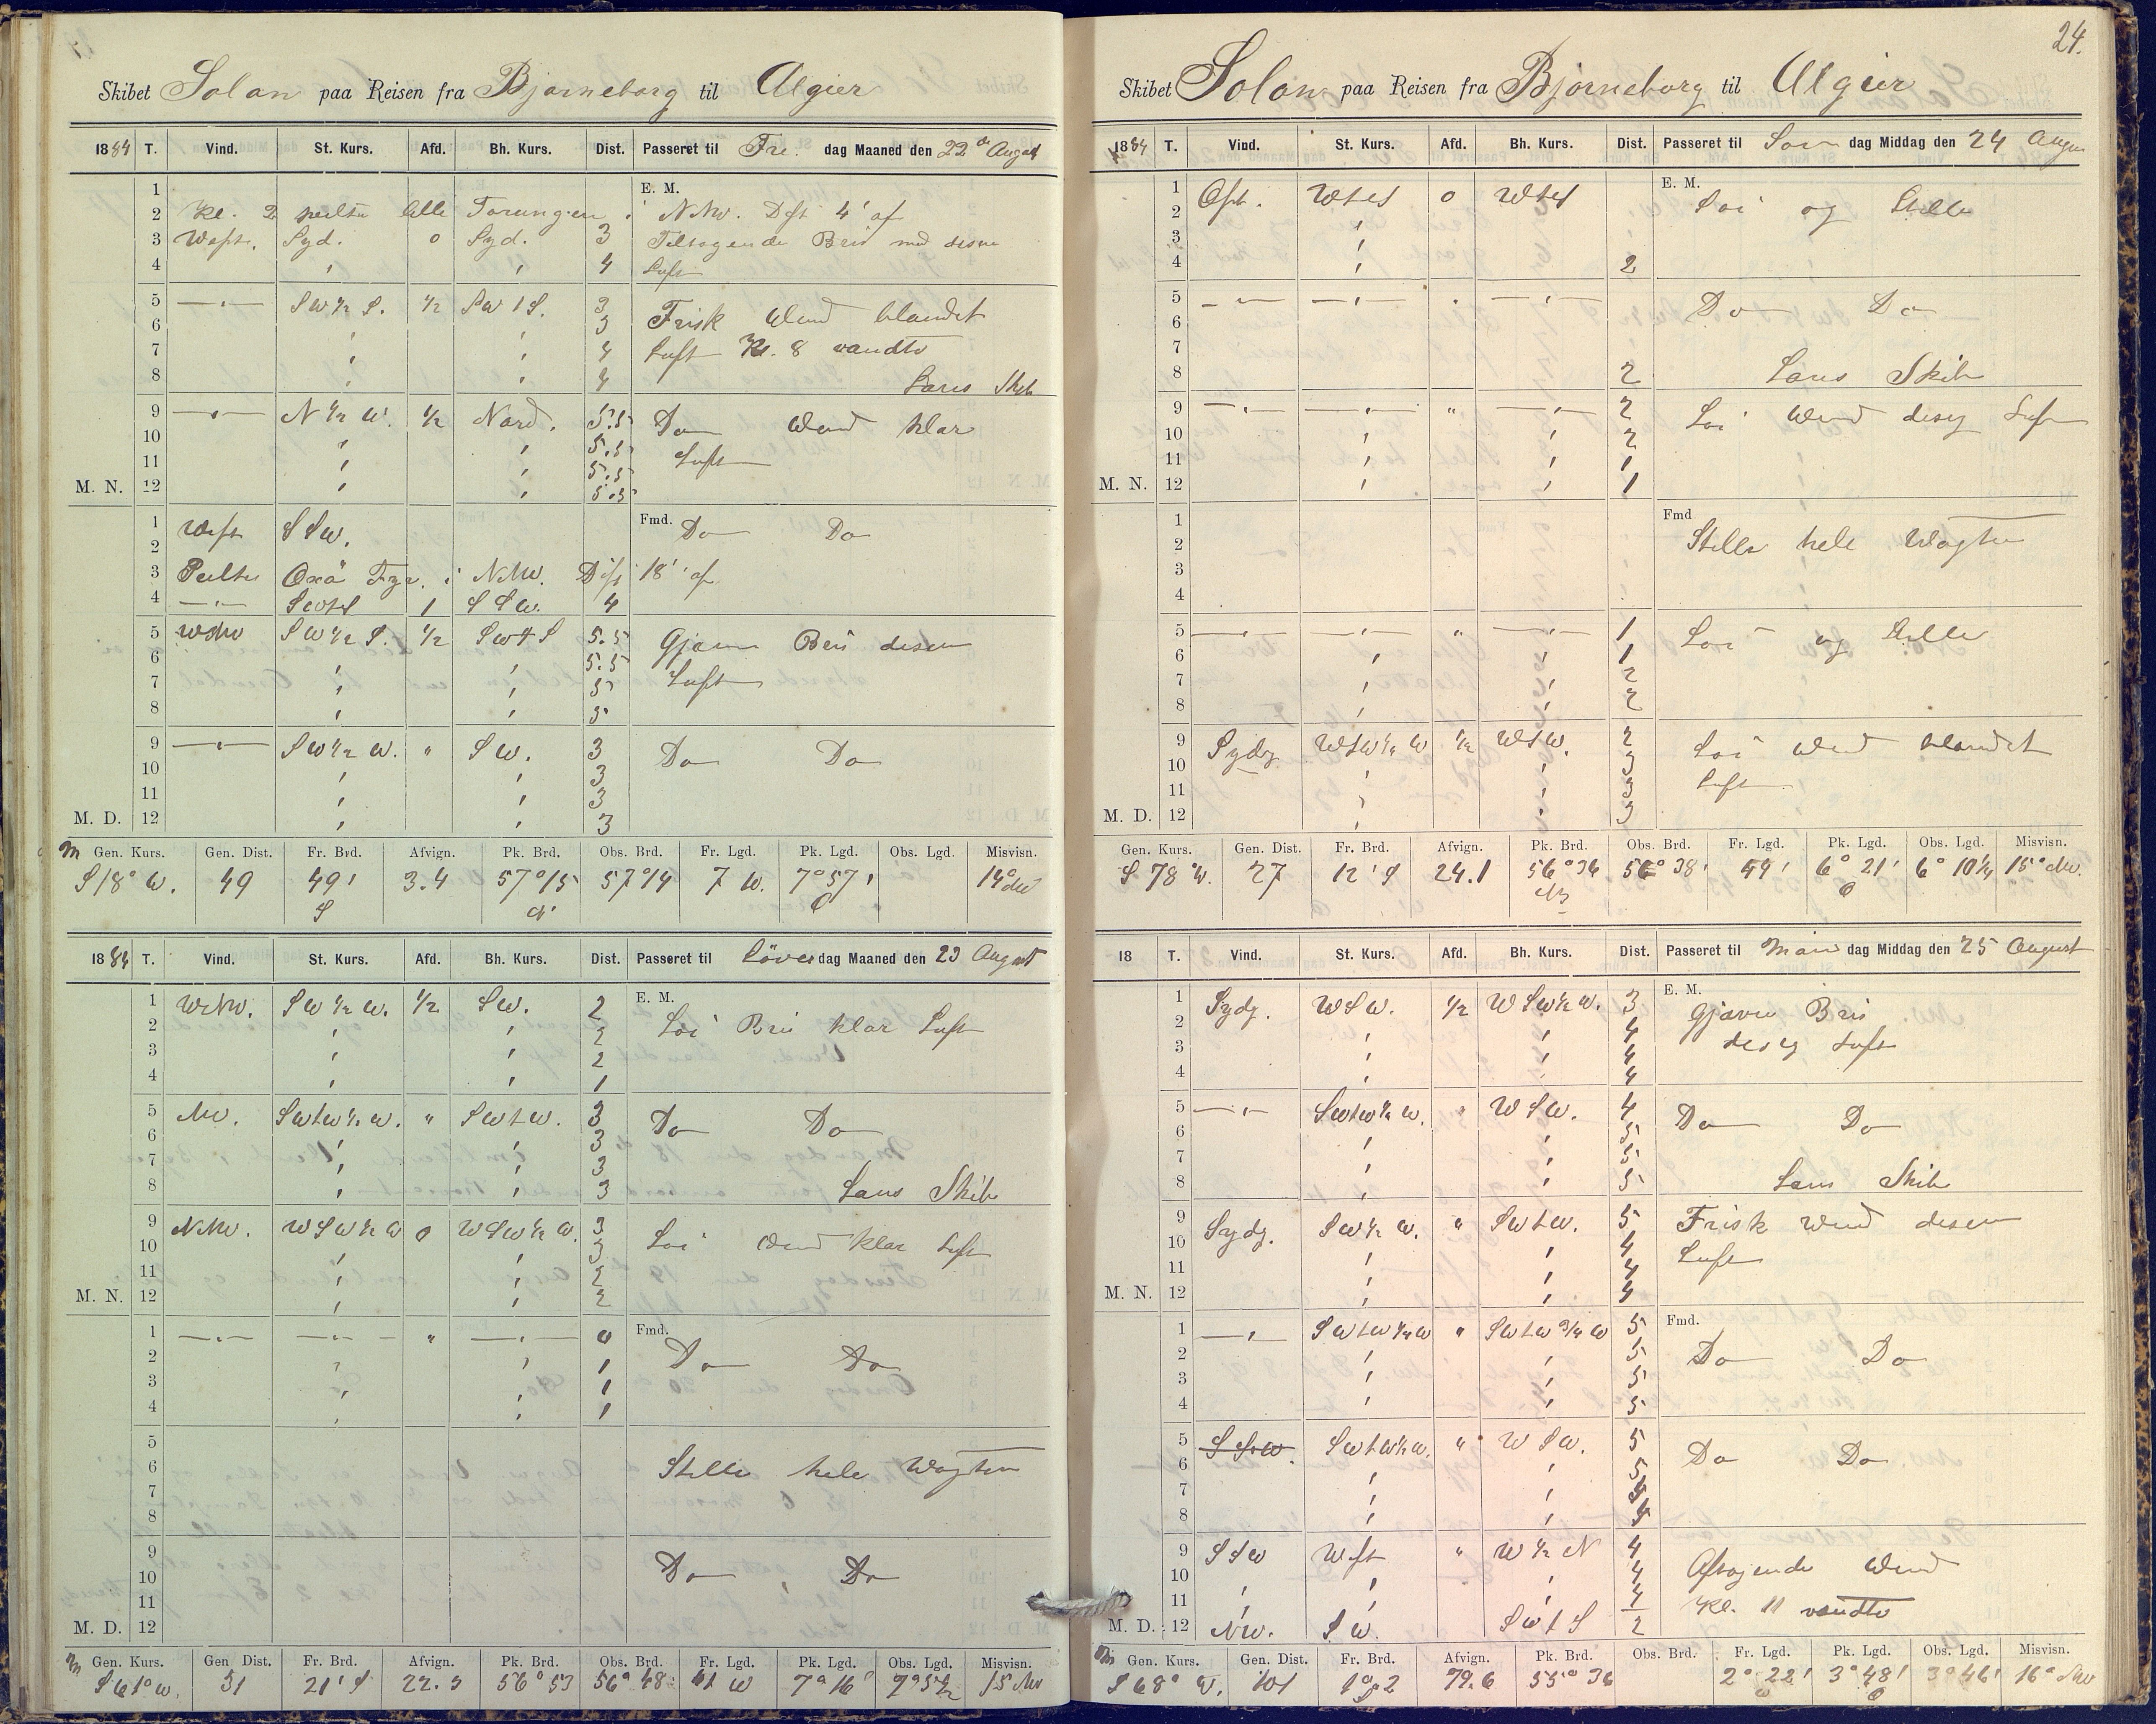 Skibet Solon paa Reisen fra Bjorneborg til Algier
1884 T. Vind. St. Kurs. Afd. Bh. Kurs. Dist. Passeret til Fre. dag Maaned den 22de August
1 E. M.
2 Kl. 2 peilte lille Torungen i NNW. Dist 4' af
3 West. Syd. 0 Syd. 3 Tiltagende Bris med disen
4 " " 4 Luft
5 —"— SW½S. ½ SW t S. 3 Frisk Wind blandet
6 " " 3
7 " " 4 Luft Kl. 8 vandte
8 " " 4 Lans Skib
9 —"— N½W. ½ Nord. 5.5 Do Wind klar
10 " " 5.5 Luft
11 " " 5.5
M. N. 12 " " 5.5
1 West SSW. Fmd. Do Do
2
3 Peilte Oxö Fyr. i NNW. Dist 18' af
4 —"— SWtS 1 SSW. 4
5 WNW SW½S. ½ SWtS 5.5 Gjævn Bris disen
6 " " 5.5
7 " " 5 Luft
8 " " 5
9 —"— SW½W. " SW. 3 Do Do
10 " " 3
11 " " 3
M. D. 12 " " 3
Gen. Kurs. Gen. Dist. Fr. Brd. Afvign. Pk. Brd. Obs. Brd. Fr. Lgd. Pk. Lgd. Obs. Lgd. Misvisn.
S 18° W. 49 49' S 3.4 57°15 57°14 7 W. 7°57' O 14° NW
1884 T. Vind. St. Kurs. Afd. Bh. Kurs. Dist. Passeret til Löver dag Maaned den 23 August
1 WNW. SW½W. ½ SW. 2 E. M.
2 " " 2 Loi Bris klar Luft
3 " " 2
4 " " 1
5 NW. SWtW½W. " SWtW. 3 Do Do
6 " " 3
7 " " 3
8 " " 3 Lans Skib
9 NNW. WSW½W 0 WSW½W. 3
10 " " 3 Loi Wind klar Luft
11 " " 2
M. N. 12 " " 2
1 —"— —"— " —"— 0 Fmd.
2 " " 1 Do Do
3 " " 1
4 " " 1
5
6 Stille hele Wagten
7
8
9
10 Do Do
11
M. D. 12
Gen. Kurs. Gen Dist. Fr. Brd. Afvign. Pk. Brd. Obs. Brd. Fr. Lgd. Pk. Lgd. Obs. Lgd. Misvisn.
S 61° W. 31 21' S 22.3 56° 53 56° 48 41 W 7° 16' 15 NW
24.
Skibet Solon paa Reisen fra Bjorneborg til Algier
1884 T. Vind. St. Kurs. Afd. Bh. Kurs. Dist. Passeret til Søn dag Middag den 24 Augus
1 Ost. WtS 0 WtS E. M. Loi og Stille
2 "
3 "
4 " 2
5 —"— —"— " —"— Do Do
6
7
8 2 Lans Skib
9 —"— —"— " —"— 2 Loi Wind disig Luft
10 " " 2
11 " " 1
M. N. 12 " " 1
1 Fmd
2 Stille hele Wagten
3
4
5 —"— —"— " —"— 1 Loi og Stille
6 " " 1
7 " " 2
8 " " 2
9 Sydg WSW½W ½ WSW. 2 Loi Wind blandet
10 " " 3
11 " " 3 Luft
M. D. 12 " " 3
Gen. Kurs. Gen. Dist. Fr. Brd. Afvign. Pk. Brd. Obs. Brd. Fr. Lgd. Pk. Lgd. Obs. Lgd. Misvisn.
S 78° W. 27 12' S 24.1 56° 36 56° 38' 54' 6° 21' O 6° 10½ 15° NW.
18 T. Vind. St. Kurs. Afd. Bh. Kurs. Dist. Passeret til Man dag Middag den 25 August
1 Sydg. WSW. ½ WSW½W. 3 E. M. Gjævn Bris
2 " " 4
3 " " 4 disig Luft
4 " " 4
5 —"— SWtW½W. " WSW. 4 Do Do
6 " " 5
7 " " 5
8 " " 5 Lans Skib
9 Sydg. SW½W. " SWtW. 5 Frisk Wind disen
10 " " 4
11 " " 4 Luft
M. N. 12 " " 4
1 —"— SWtW¼W " SWtW¾W 5 Fmd.
2 " " 5 Do Do
3 " " 5
4 " " 5
5 SSW. SWtW½W. " WSW. 5 Do Do
6 " " 5
7 " "
8 " "
9 SSW West " W½N 4 Aftagende Wind
10 " " " 4
11 " " " 4 Kl. 11 vendte
M. D. 12 NW. SW. SWtS 2
Gen. Kurs. Gen. Dist. Fr. Brd. Afvign. Pk. Brd. Obs. Brd. Fr. Lgd. Pk. Lgd. Obs. Lgd. Misvisn.
S 68° W. 101 1° 2 79.6 55° 36 2° 22' 3° 48' O 3° 46' 16° NW